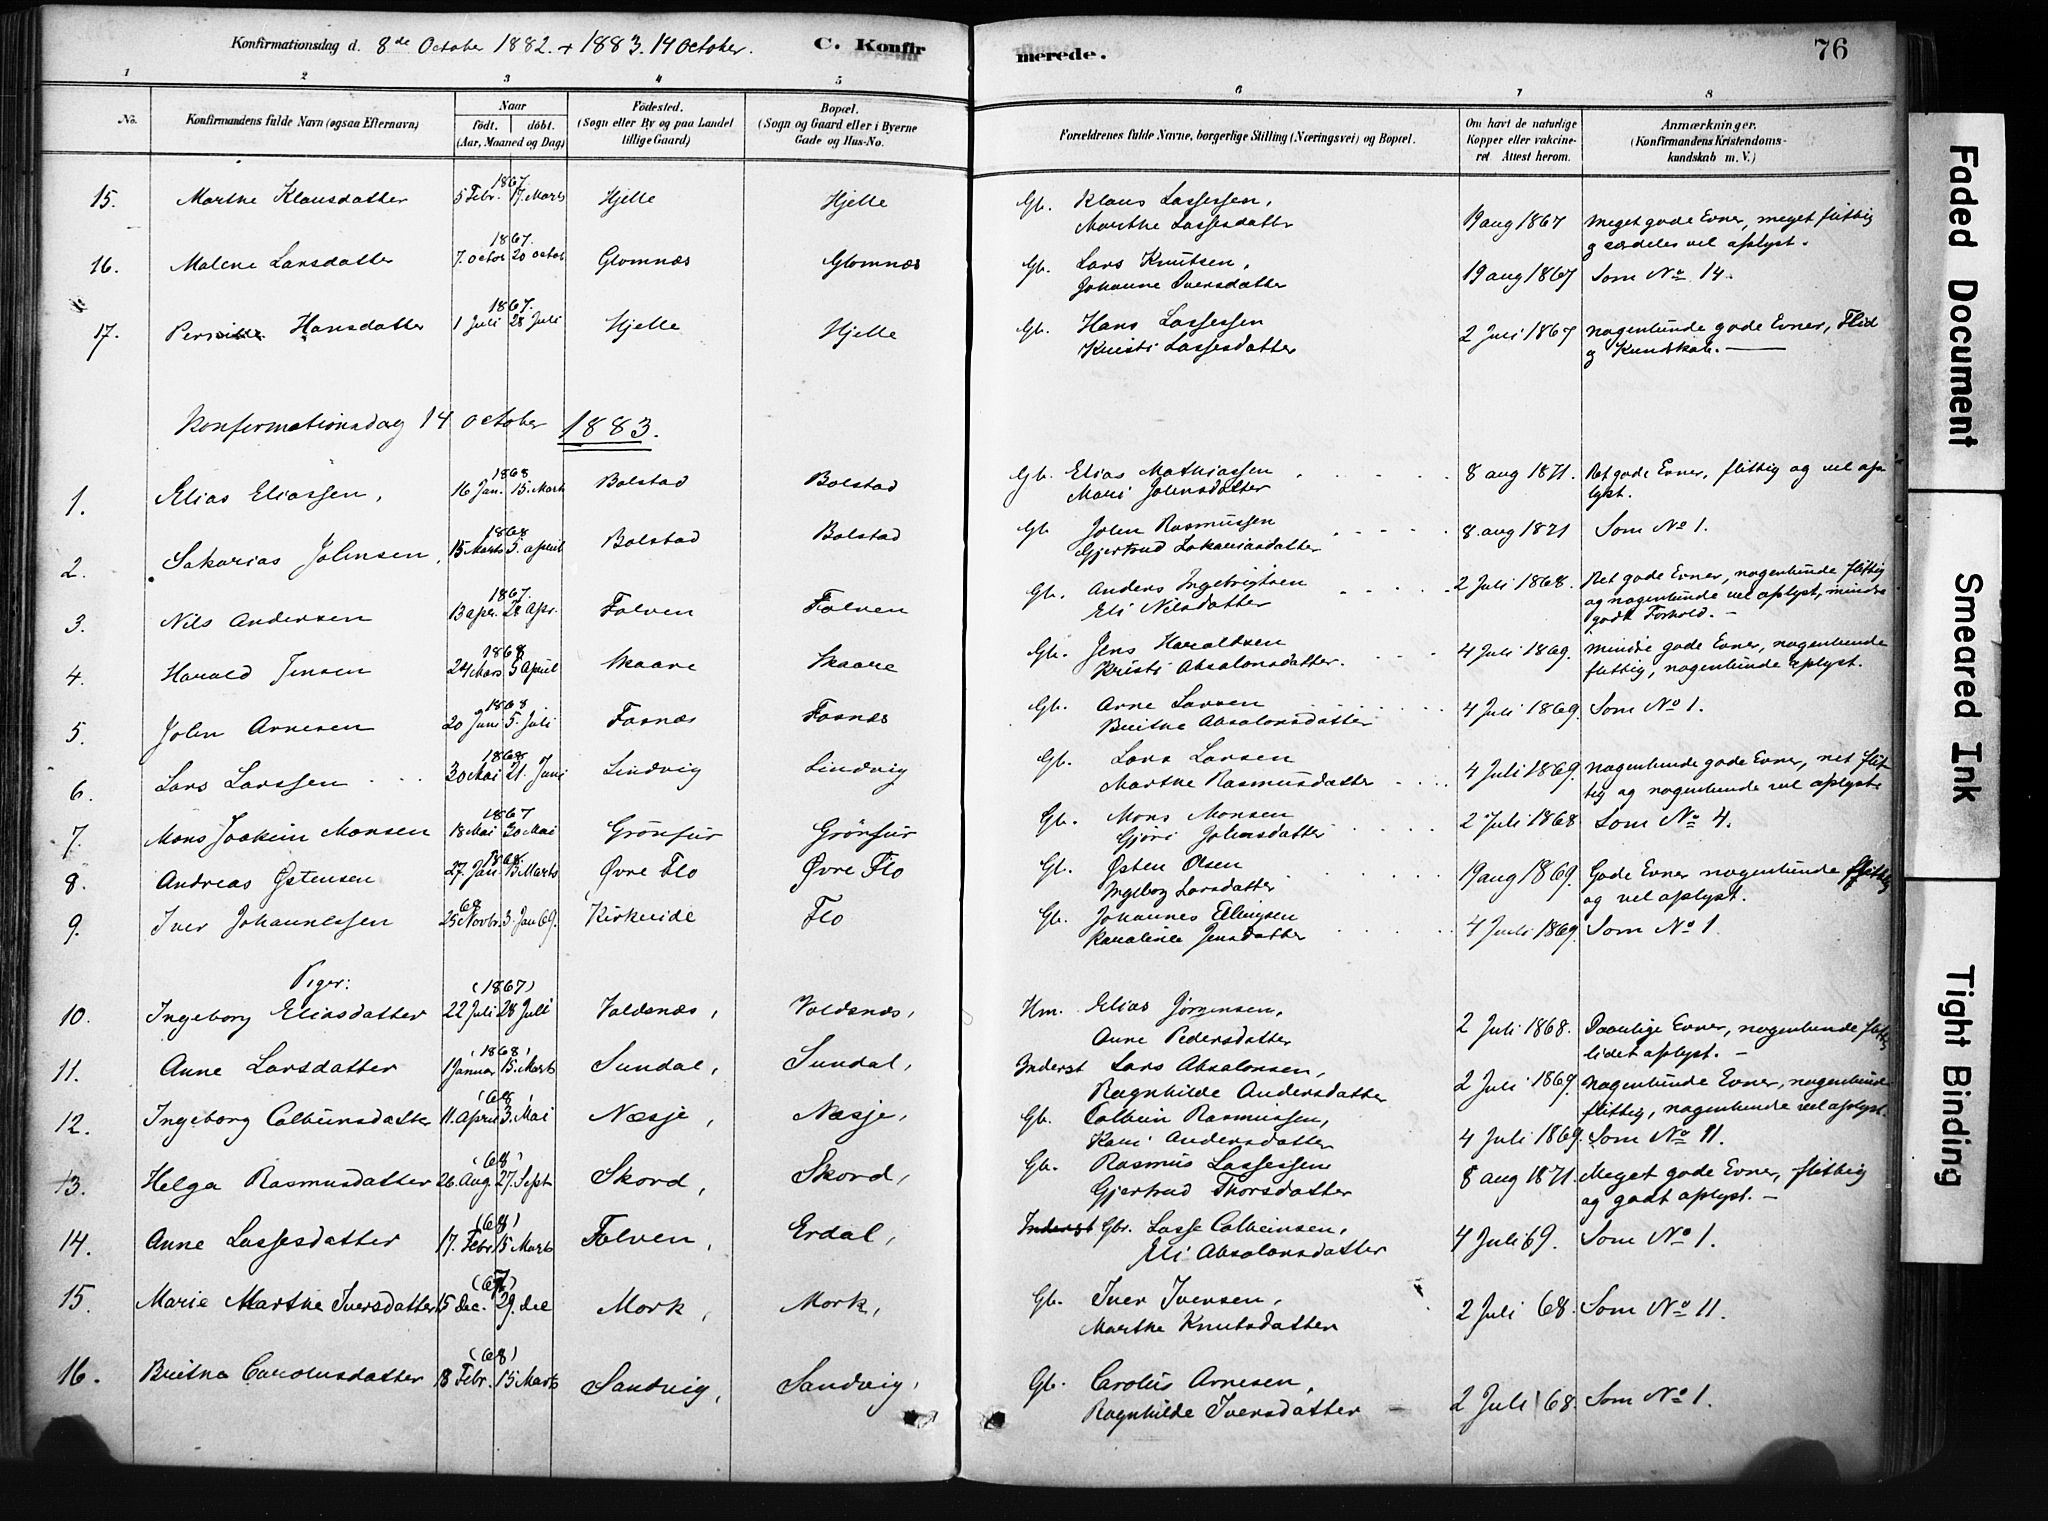 Konfirmationsdag d. 8de October 1882. + 1883. 14 October. C. Konfirmerede. 76
1 2 3 4 5 6 7 8
No. Konfirmandens fulde Navn (ogsaa Efternavn) Naar født. døbt. (Aar, Maaned og Dag) Fødested. (Sogn eller By og paa Landet tillige Gaard) Bopæl. (Sogn og Gaard eller i Byerne Gade og Hus-No. Forældrenes fulde Navne, borgerlige Stilling (Næringsvei) og Bopæl. Om havt de naturlige Kopper eller vakcineret Attest herom. Anmærkninger. (Konfirmandens Kristendomskundskab m. V.)
15. Marthe Klausdatter 1867 5 Febr. 17. Marts Hjelle Hjelle Gb. Klaus Lassessen, Marthe Lassesdatter 19 aug 1867 Meget gode Evner, meget flittig og særdeles vel oplyst.
16. Malene Larsdatter 1867. 7. octor 20 octor Glomnæs Glomnæs Gb. Lars Knutsen, Johanne Iversdatter 19 aug 1867 Som No 14.
17. Hansdatter 1867. 1 Juli 28 Juli Hjelle Hjelle Gb. Hans Lassessen Kristi Lassesdatter 2 Juli 1867 nogenlunde gode Evner, Flid og Kundskab.
Konfirmationsdag 14 october 1883.
1. Elias Eliassen, 1868 16 Jan. 15. Marts Bolstad Bolstad Gb. Elias Mathiassen Mari Johnsdatter 8 aug 1871. Ret gode Evner, flittig og vel oplyst.
2. Sakarias Johnsen, 1868 15 Marts 5. april Bolstad Bolstad Gb. John Rasmussen Gjertrud Sakariasdatter 8 aug 1871 Som No 1.
3. Nils Andersen 1867. 13 apr. 28 Apr. Folven Folven Gb. Anders Ingebrigtsen Eli Nilsdatter 2 Juli 1868. Ret gode Evner, nogenlunde flittig og nogenlunde vel oplyst, mindre godt Forhold.
4. Harald Jensen 1868 24 Mars 5 April Skaare Skaare Gb. Jens Haraldsen Kristi Absalonsdatter. 4 Juli 1869. mindre gode Evner, nogenlunde flittig, nogenlunde oplyst.
5. John Arnesen 1868 20 Juni 5. Juli Fosnæs Fosnæs Gb. Arne Larsen Brithe Absalonsdatter 4 Juli 1869. Som No 1.
6. Lars Larssen 1868 30 Mai 21. Juni Lindvig Lindvig Gb. Lars Larsen Marthe Rasmusdatter 4 Juli 1869. nogenlunde gode Evner, ret flittig og nogenlunde vel oplyst.
7. Mons Joakim Monsen 1867 18 Mai 30 Mai Grønfur Grønfur Gb. Mons Monsen Gjøri Johnsdatter 2 Juli 1868 Som No 4.
8. Andreas Østensen 1868. 27. Jan 15 Marts Øvre Flo Øvre Flo Gb. Østen Olsen Ingeborg Larsdatter 19 aug 1869. Gode Evner nogenlunde flittig og vel oplyst.
9. Iver Johannessen 68 25 Novbr. 3. Jan 69. Kirkeeide Flo Gb. Johannes Ellingsen Karoline Jensdatter 4 Juli 1869. Som No 1.
Piger:
10. Ingeborg Eliasdatter (1867) 22 Juli 28 Juli Voldsnæs, Voldsnæs, Hm. Elias Jørgensen, Anne Pedersdatter 2 Juli 1868. Daarlige Evner, nogenlunde flittig lidet oplyst. -
11. Anne Larsdatter (1868) 1 Januar 15. Marts Sundal, Sundal, Inderst Lars Absalonsen, Ragnhilde Andersdatter 2 Juli 1869. nogenlunde Evner, nogenlunde flittig, nogenlunde vel oplyst.
12. Ingeborg Colbeinsdatter (68) 11. April 3. Mai Næsje, Næsje, Gb. Colbein Rasmussen, Kari Andersdatter 4 Juli 1869. Som No 11.
13. Helga Rasmusdatter (68) 26. Aug 27. Sept Skord, Skord, Gb. Rasmus Lassessen Gjertrud Thorsdatter 8 aug 1871. Meget gode Evner, flittig og godt oplyst. -
14. Anne Lassesdatter (68) 17. Febr. 15 Marts Folven, Erdal, Inderst Gbr. Lasse Colbeinsen, Eli Absalonsdatter 4 Juli 69. Som No 1.
15. Marie Marthe Iversdatter (67) 15 Dec. 29. dec Mork, Mork, Gb. Iver Iversen, Marthe Knutsdatter 2 Juli 68. Som No 11.
16. Brithe Carolusdatter (68) 18 Febr. 15 Marts Sandvig, Sandvig, Gb. Carolus Arnesen, Ragnhilde Iversdatter 2 Juli 68. Som No 1.
Faded Document
Smeared Ink
Tight Binding